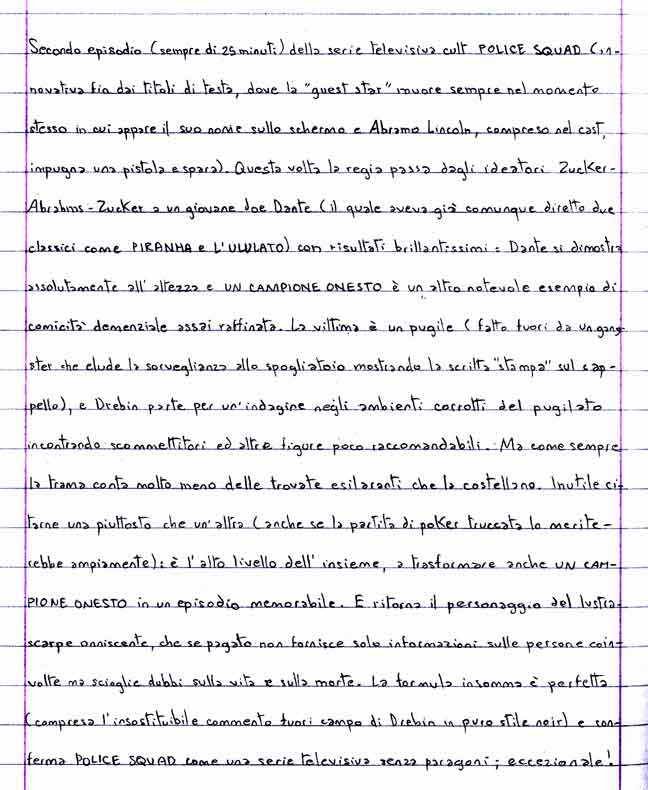 Secondo episodio (sempre di 25 minuti) della serie televisiva cult POLICE SQUAD (in-
novativa fin dai titoli di testa, dove la "guest star" muore sempre nel momento
stesso in cui appare il suo nome sullo schermo e Abramo Lincoln, compreso nel cast,
impugna una pistola e spara). Questa volta la regia passa dagli ideatori Zucker-
Abrahms-Zucker a un giovane Joe Dante (il quale aveva già comunque diretto due
classici come PIRANHA e L'ULULATO) con risultati brillantissimi: Dante si dimostra
assolutamente all'altezza e UN CAMPIONE ONESTO è un altro notevole esempio di
comicità demenziale assai raffinata. La vittima è un pugile (fatto fuori da un gang-
ster che elude la sorveglianza allo spogliatoio mostrando la scritta "stampa" sul cap-
pello), e Drebin parte per un'indagine negli ambienti corrotti del pugilato
incontrando scommettitori ed altre figure poco raccomandabili. Ma come sempre
la trama conta molto meno delle trovate esilaranti che la costellano. Inutile ci-
tarne una piuttosto che un'altra (anche se la partita di poker truccata lo merite-
rebbe ampiamente): è l'alto livello dell'insieme, a trasformare anche UN CAM-
PIONE ONESTO in un episodio memorabile. E ritorna il personaggio del lustra-
scarpe onniscente, che se pagato non fornisce solo informazioni sulle persone coin-
volte ma scioglie dubbi sulla vita e sulla morte. La formula insomma è perfetta
(compresa l'insostituibile commento fuori campo di Drebin in puro stile noir) e con-
ferma POLICE SQUAD come una serie televisiva senza paragoni; eccezionale!